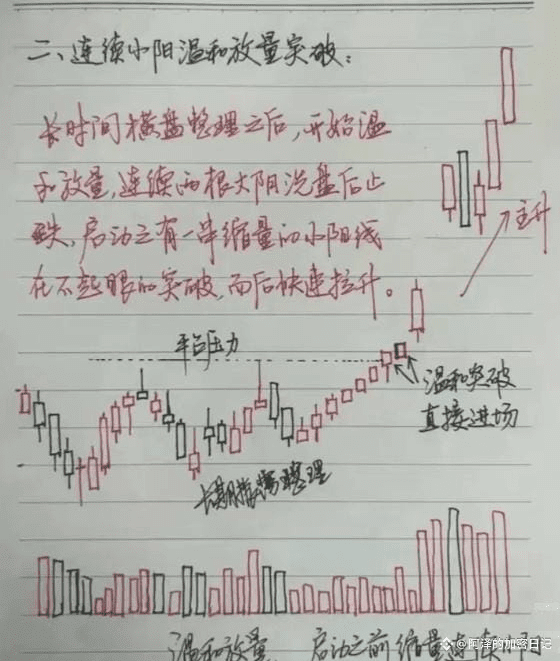 二、连续小阳温和放量突破:
长时间横盘整理之后,开始温
和放量,连续两根大阴洗盘后止
跌,启动之有一串缩量的小阳线
在不起眼的突破,而后快速拉升。
主升
平台压力
温和突破
直接进场
长期横盘整理
温和放量
启动之前缩量连续小阳
@阿泽的加密日记